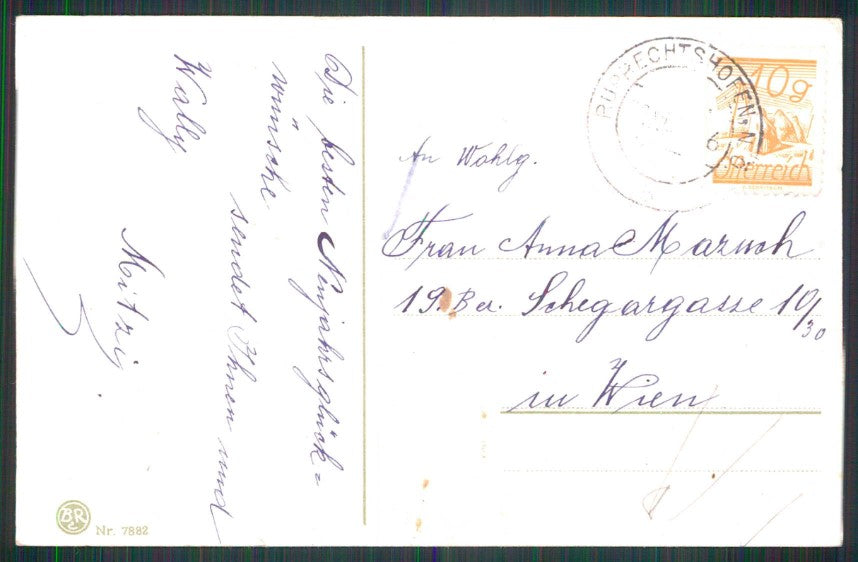 Die besten Neujahrsglück=
wünsche
sendet Ihnen und
Wally
Mitzi.
RUPRECHTSHOFEN, N.
10g
Österreich
An Wohlg.
Frau Anna
19. Bez. Schegargasse 10/30
in Wien
BR
Nr. 7882